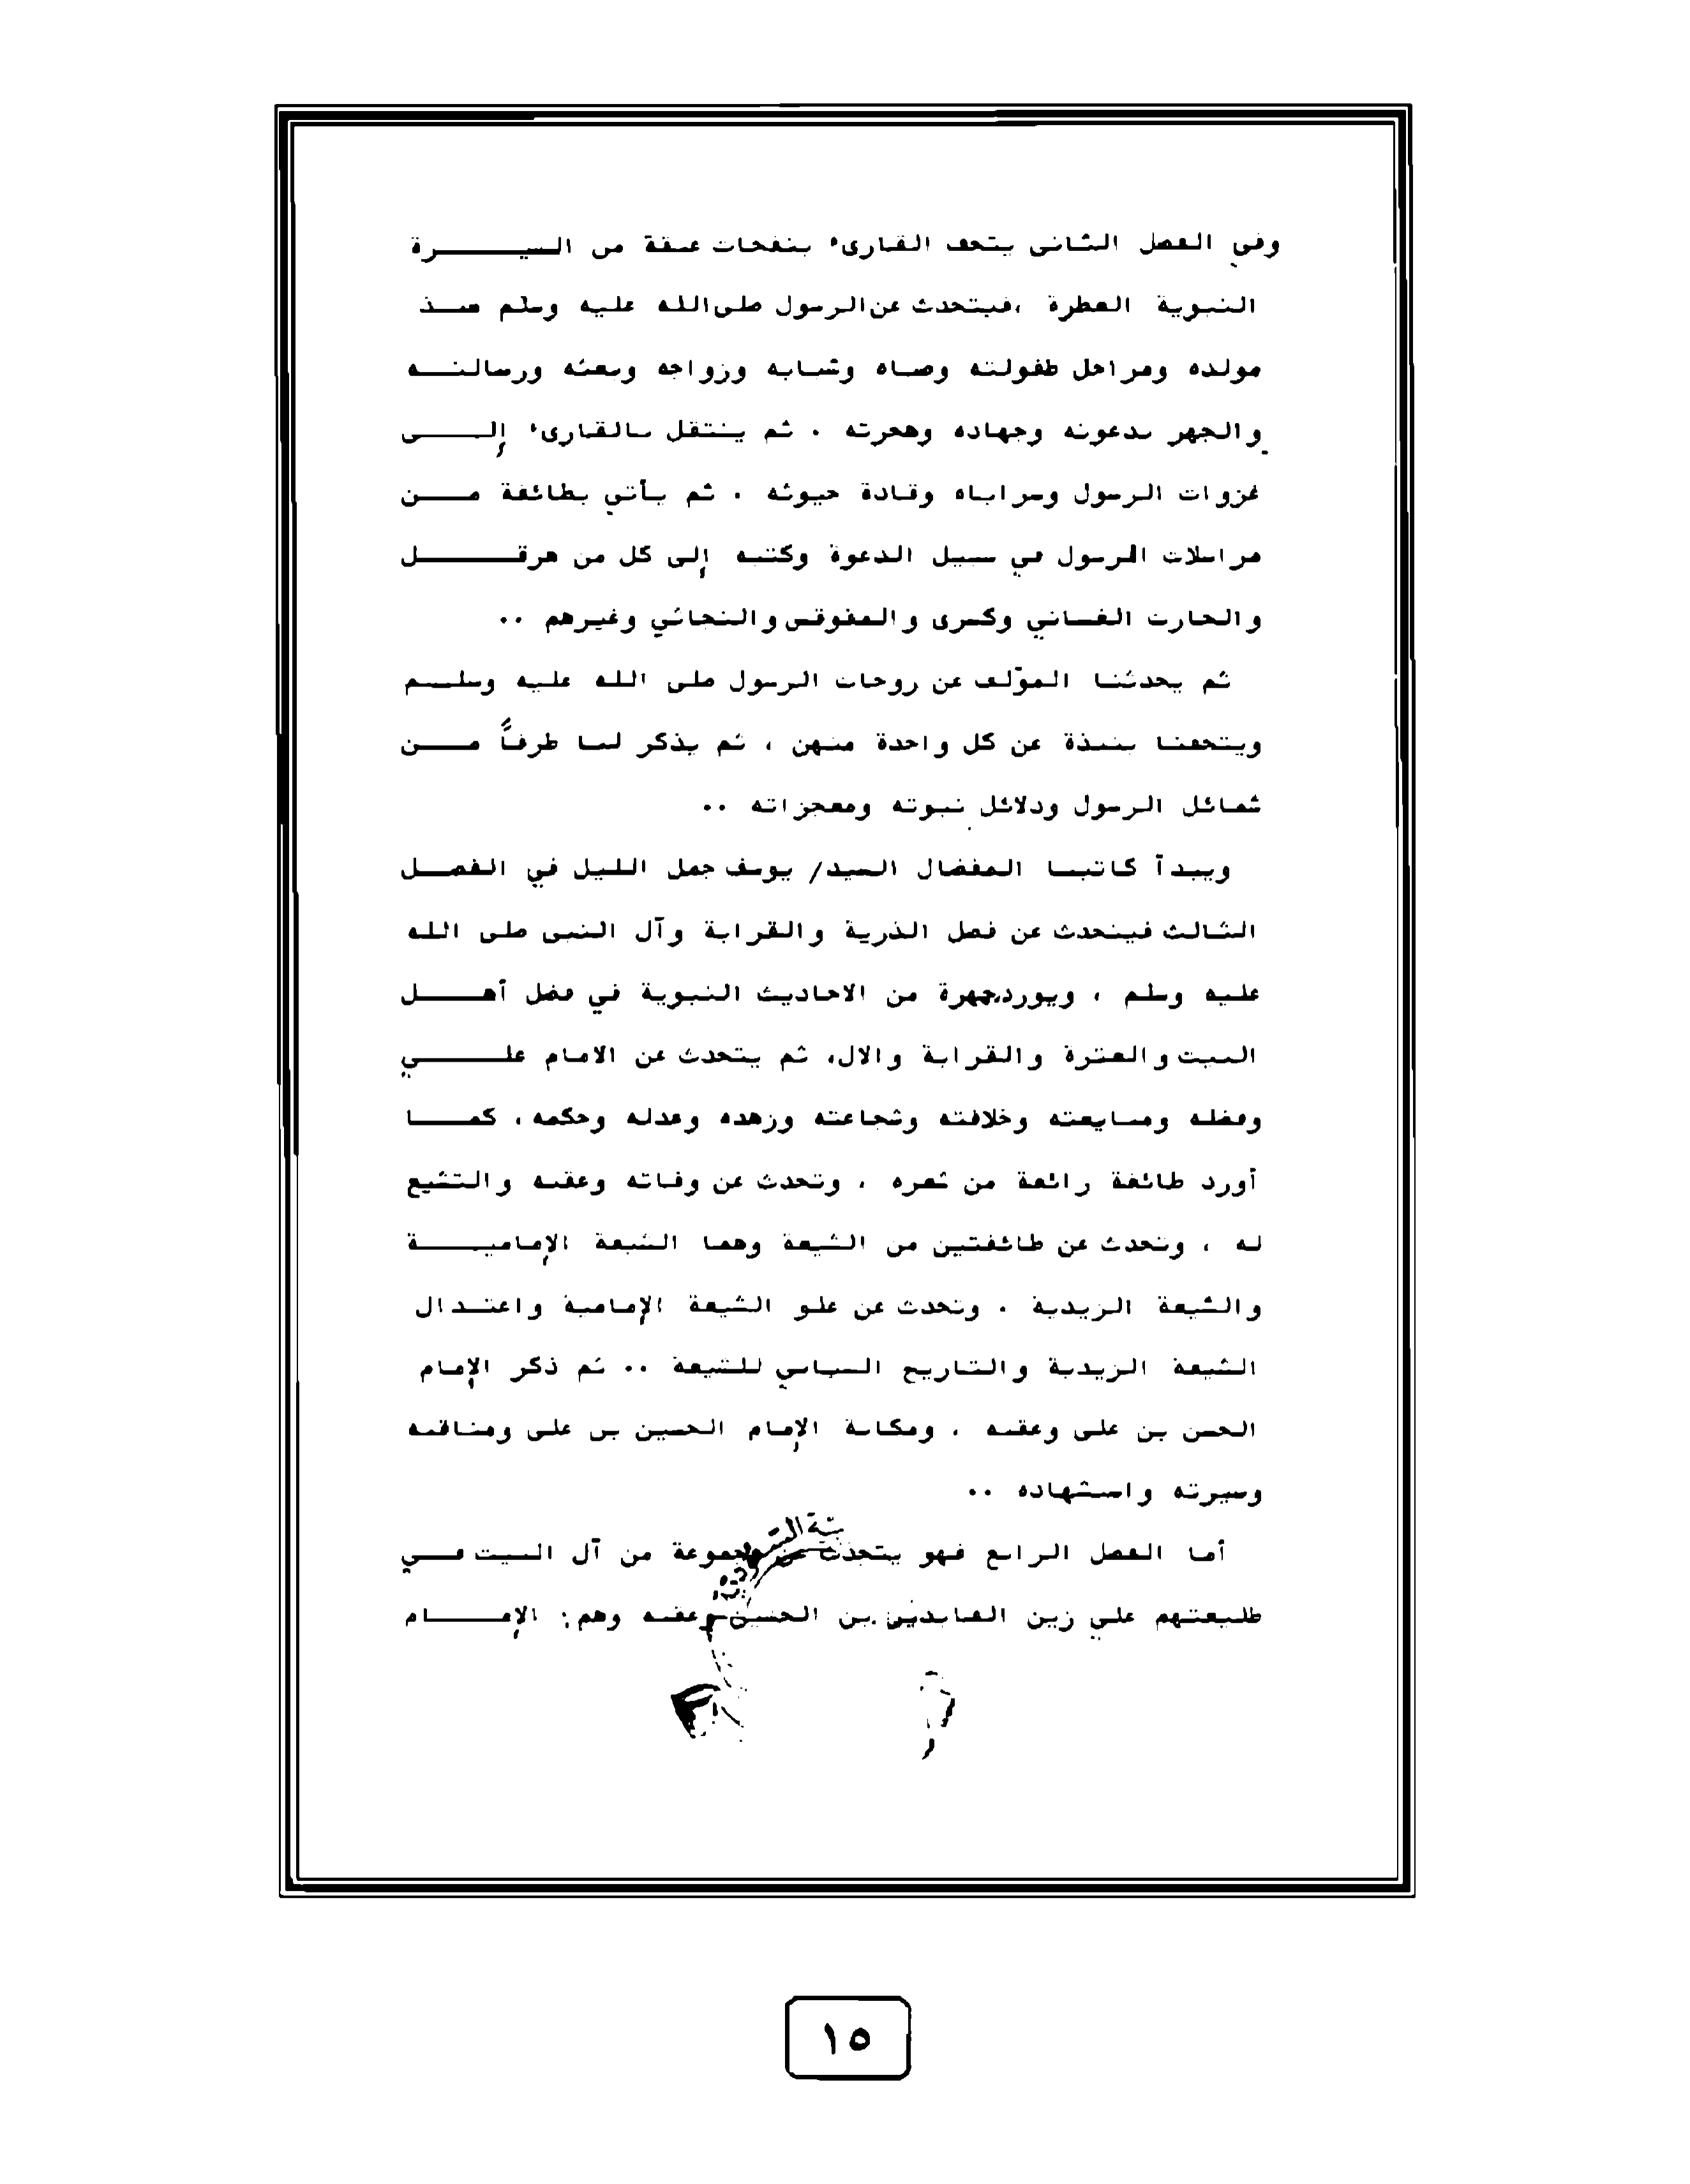 وفي الفصل الثانى يتحف القارىء بنفحات عبقة من السيرة
النبوية العطرة ،فيتحدث عن الرسول صلى الله عليه وسلم منذ
مولده ومراحل طفولته وصباه وشبابه وزواجه وبعثه ورسالته
والجهر بدعوته وجهاده وهجرته . ثم ينتقل بالقارىء إلى
غزوات الرسول وسراياه وقادة جيوشه . ثم يأتي بطائفة من
مراسلات الرسول في سبيل الدعوة وكتبه إلى كل من هرقل
والحارث الغساني وكسرى والمقوقس والنجاشي وغيرهم ..
ثم يحدثنا المؤلف عن زوجات الرسول صلى الله عليه وسلم
ويتحفنا بنبذة عن كل واحدة منهن ، ثم يذكر لنا طرفاً من
شمائل الرسول ودلائل نبوته ومعجزاته ..
ويبدأ كاتبنا المفضال السيد/ يوسف جمل الليل في الفصل
الثالث فيتحدث عن فضل الذرية والقرابة وآل النبى صلى الله
عليه وسلم ، ويورد جمهرة من الاحاديث النبوية في فضل أهل
البيت والعترة والقرابة والال، ثم يتحدث عن الامام علي
وفضله ومبايعته وخلافته وشجاعته وزهده وعدله وحكمه، كما
أورد طائفة رائعة من شعره ، وتحدث عن وفاته وعقبه والتشيع
له ، وتحدث عن طائفتين من الشيعة وهما الشيعة الإمامية
والشيعة الزيدية . وتحدث عن غلو الشيعة الإمامية واعتدال
الشيعة الزيدية والتاريخ السياسي للشيعة .. ثم ذكر الإمام
الحسن بن على وعقبه . ومكانة الإمام الحسين بن على ومناقبه
وسيرته واستشهاده ..
أما الفصل الرابع فهو يتحدث عن مجموعة من آل البيت في
طليعتهم علي زين العابدين بن الحسين وعقبه وهم: الإمام
١٥